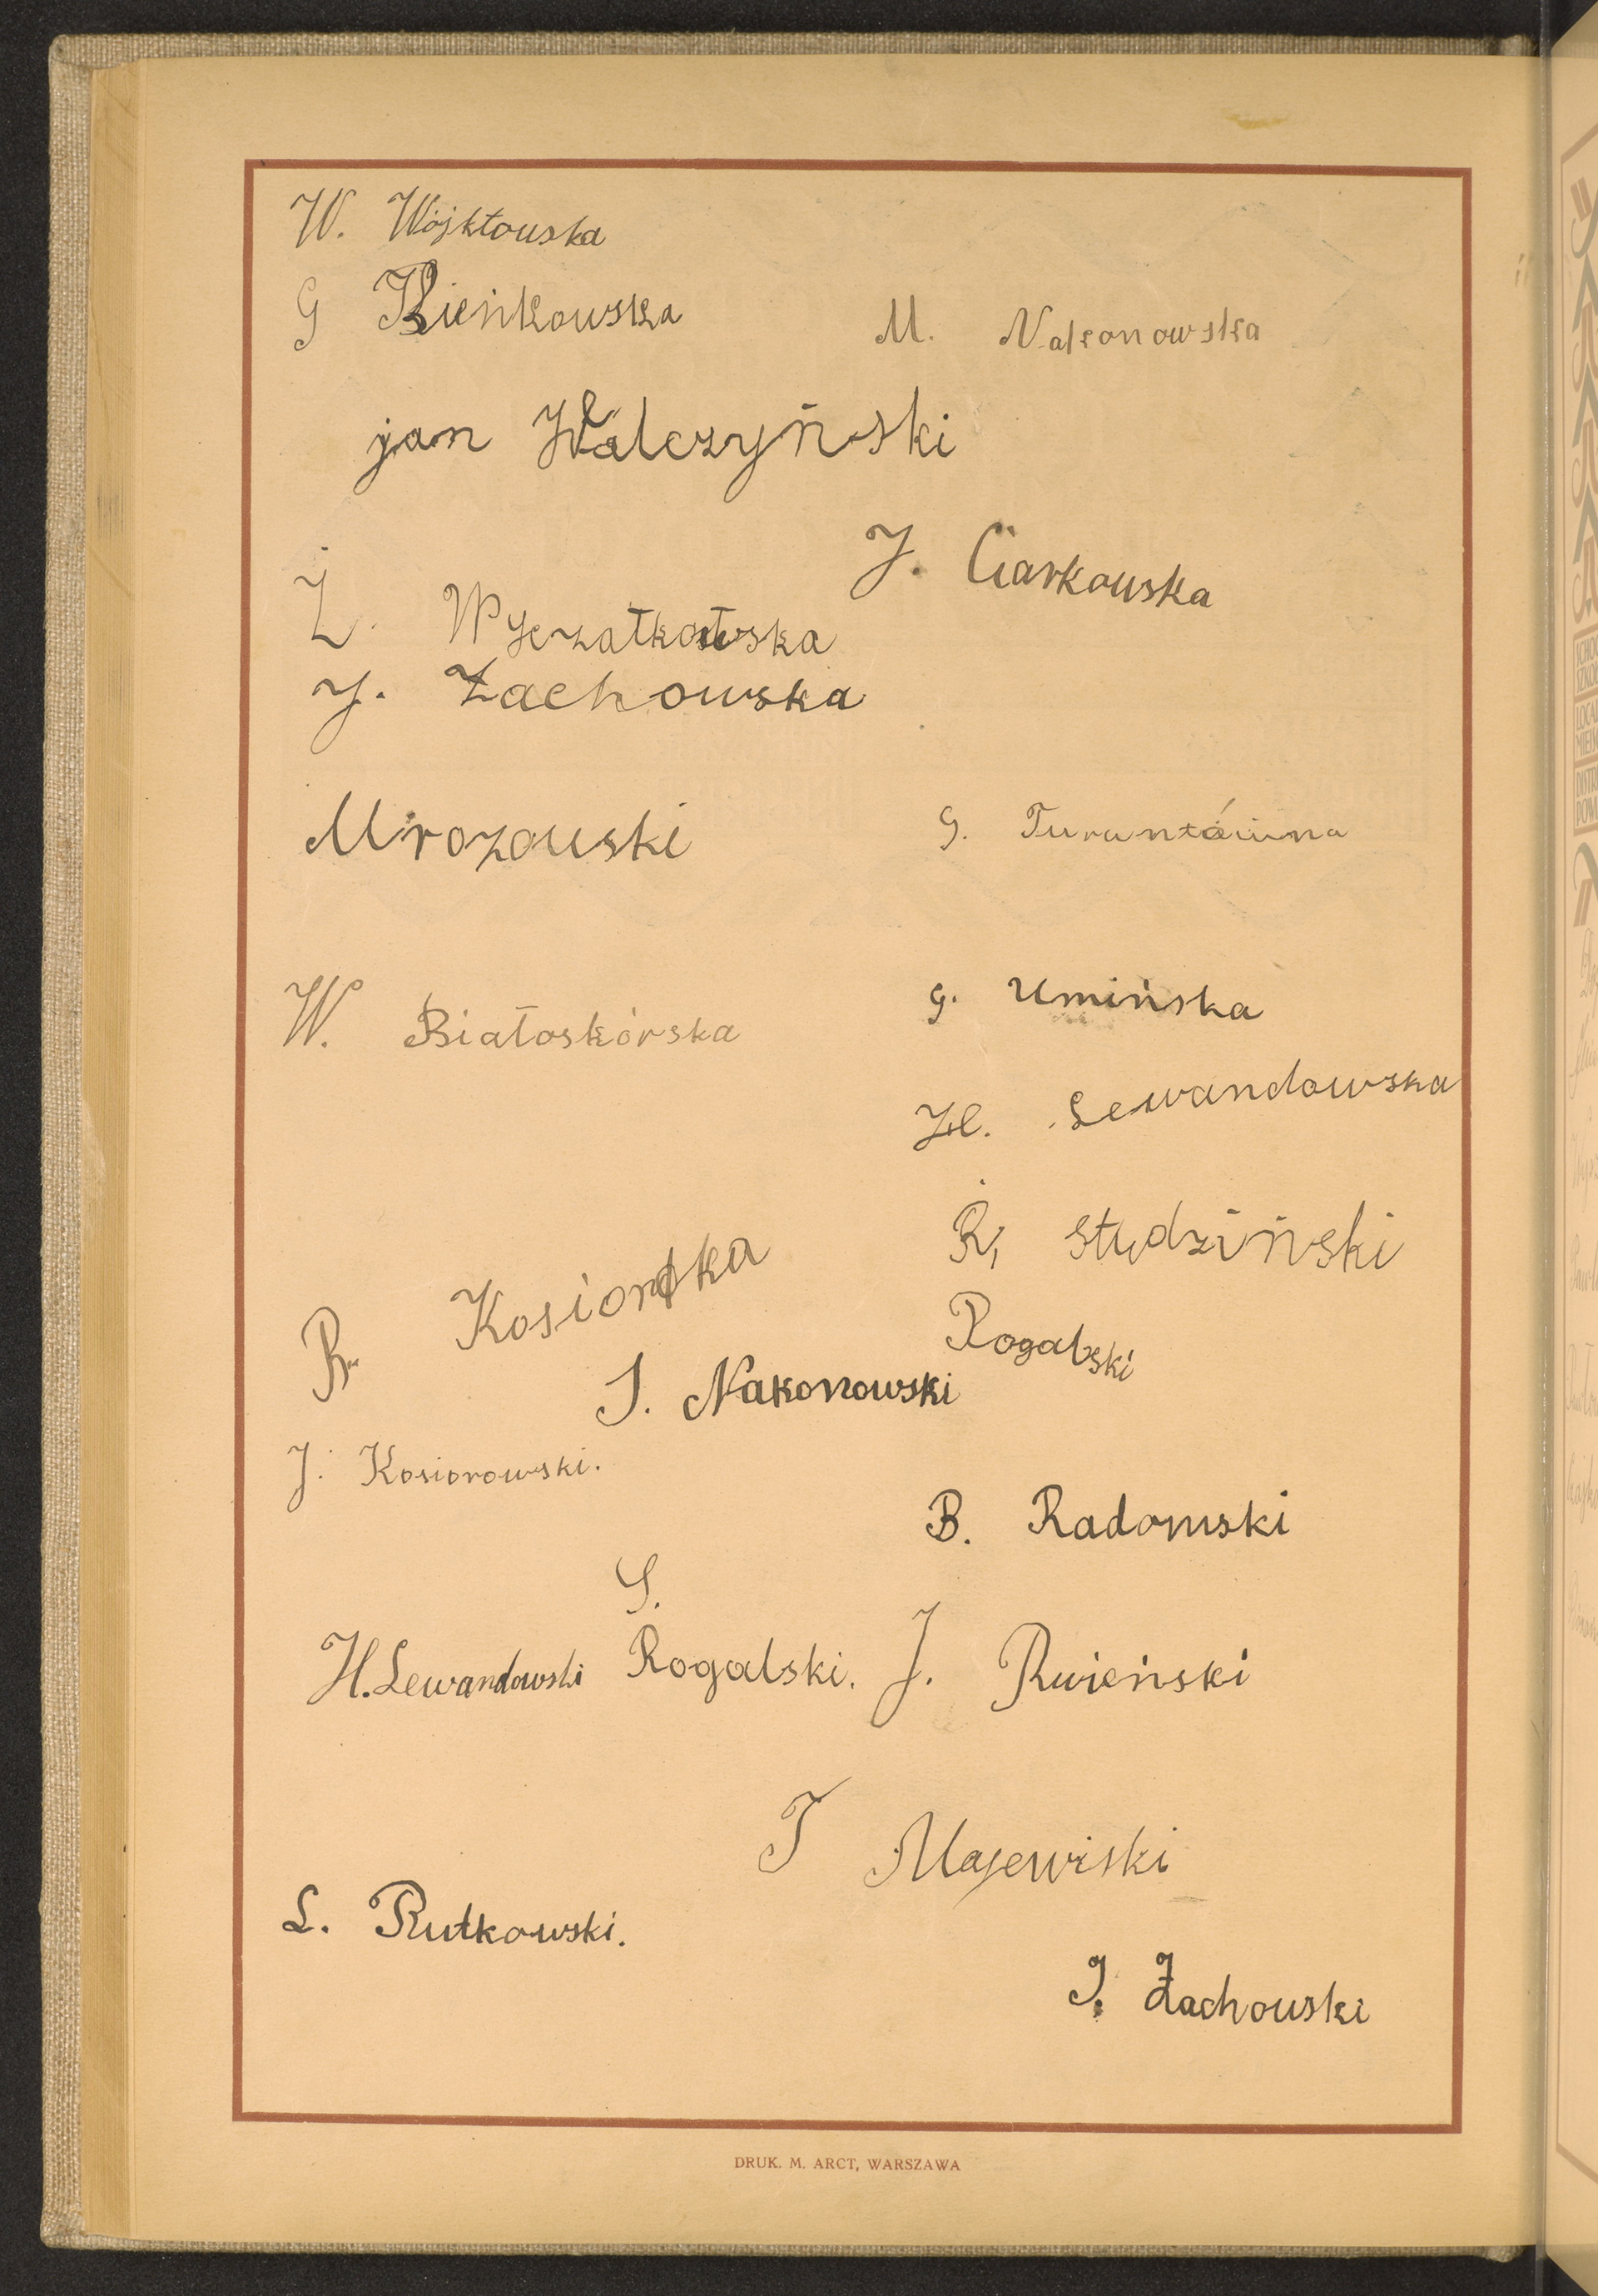 W. Wójktowska
G Bieńkowska
M. Nakonowska
jan Walczyński
J. Ciarkowska
Z. Wyczatkowska
J. Żachowska
Mrozowski
G. Turantówna
W. Białoskórska
G. Umińska
H. Lewandowska
R. Studziński
R. Kosiorska
Rogalski
J. Nakonowski
J. Kosiorowski.
B. Radomski
S.
H. Lewandowski Rogalski. J. Rwieński
T Majewiski
L. Rutkowski.
J. Żachowski
DRUK. M. ARCT, WARSZAWA